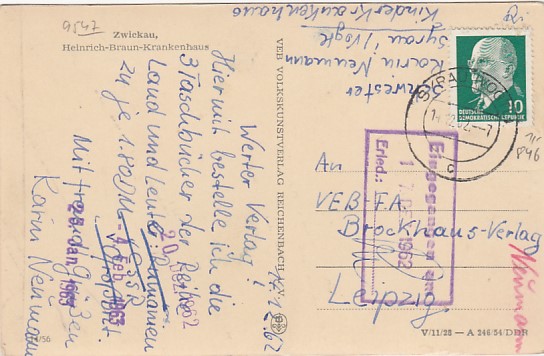 9547
Zwickau,
Heinrich-Braun-Krankenhaus
14.12.62
Werter Verlag!
Hiermit bestelle ich die
3 Taschenbücher der Reihe
Land und Leute: Rumänien
ČSSR
zu je 1.80 DM.
Mit freundl. Grüßen
Karin Neumann
20. 1962
-4. Feb. 1963
25. Jan. 1963
14/56
VEB VOLKSKUNSTVERLAG REICHENBACH i. V.
Schwester
Karin Neumann
Syrau i/Vogtl.
Kinderkrankenhaus
DEUTSCHE
DEMOKRATISCHE REPUBLIK
10
SYRAU (VOGTL)
c
846
Eingegangen am
1962
Erled.:
An
VEB-F.A.
Brockhaus-Verlag
Leipzig
Neumann
V/11/28 – A 246/54 DDR